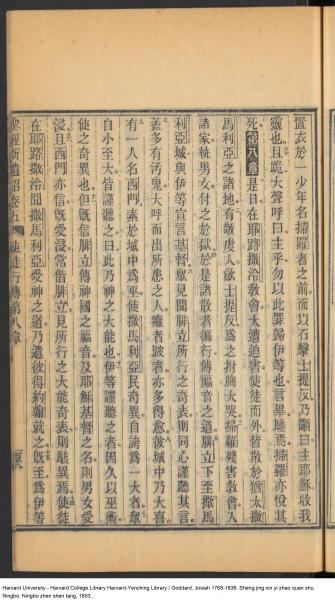 置衣於一少年名掃羅者之前而以石擊士提反乃籲曰主耶穌收我
靈也且跪大聲呼曰主乎勿以此罪歸伊等也言畢睡焉掃羅亦悅其
死第八章是日在耶路撒冷敎會大遭迫害使徒而外皆散於猶太撒
馬利亞之諸地有敬虔人斂士提反爲之拊胸大哭掃羅殘害敎會入
諸家執男女付之於獄於是諸散者徧行傳福音之道腓立下至撒馬
利亞城與伊等宣言基督衆見聞腓立所行之奇表則同心謹聽其言
蓋多有汚鬼大呼而出所患之人癱者跛者亦多得愈彼城中乃大喜
有一人名西門素於城中爲巫使撒馬利亞民奇異自誇爲一大者衆
自小至大皆謹聽之曰此乃神之大能也伊等謹聽之者因久以巫術
使之奇異也但旣信腓立傳神國之福音及耶穌基督之名則男女受
浸且西門亦信旣受浸常偕腓立見所行之大能奇表則駭異焉使徒
在耶路撒冷聞撒馬利亞受神之道乃遣彼得約翰就之旣至爲伊等
聖經新遺詔卷五 使徒行傳第八章
Harvard University - Harvard College Library Harvard-Yenching Library / Goddard, Josiah 1768-1836. Sheng jing xin yi zhao quan shu.
Ningbo: Ningbo zhen shen tang, 1853.